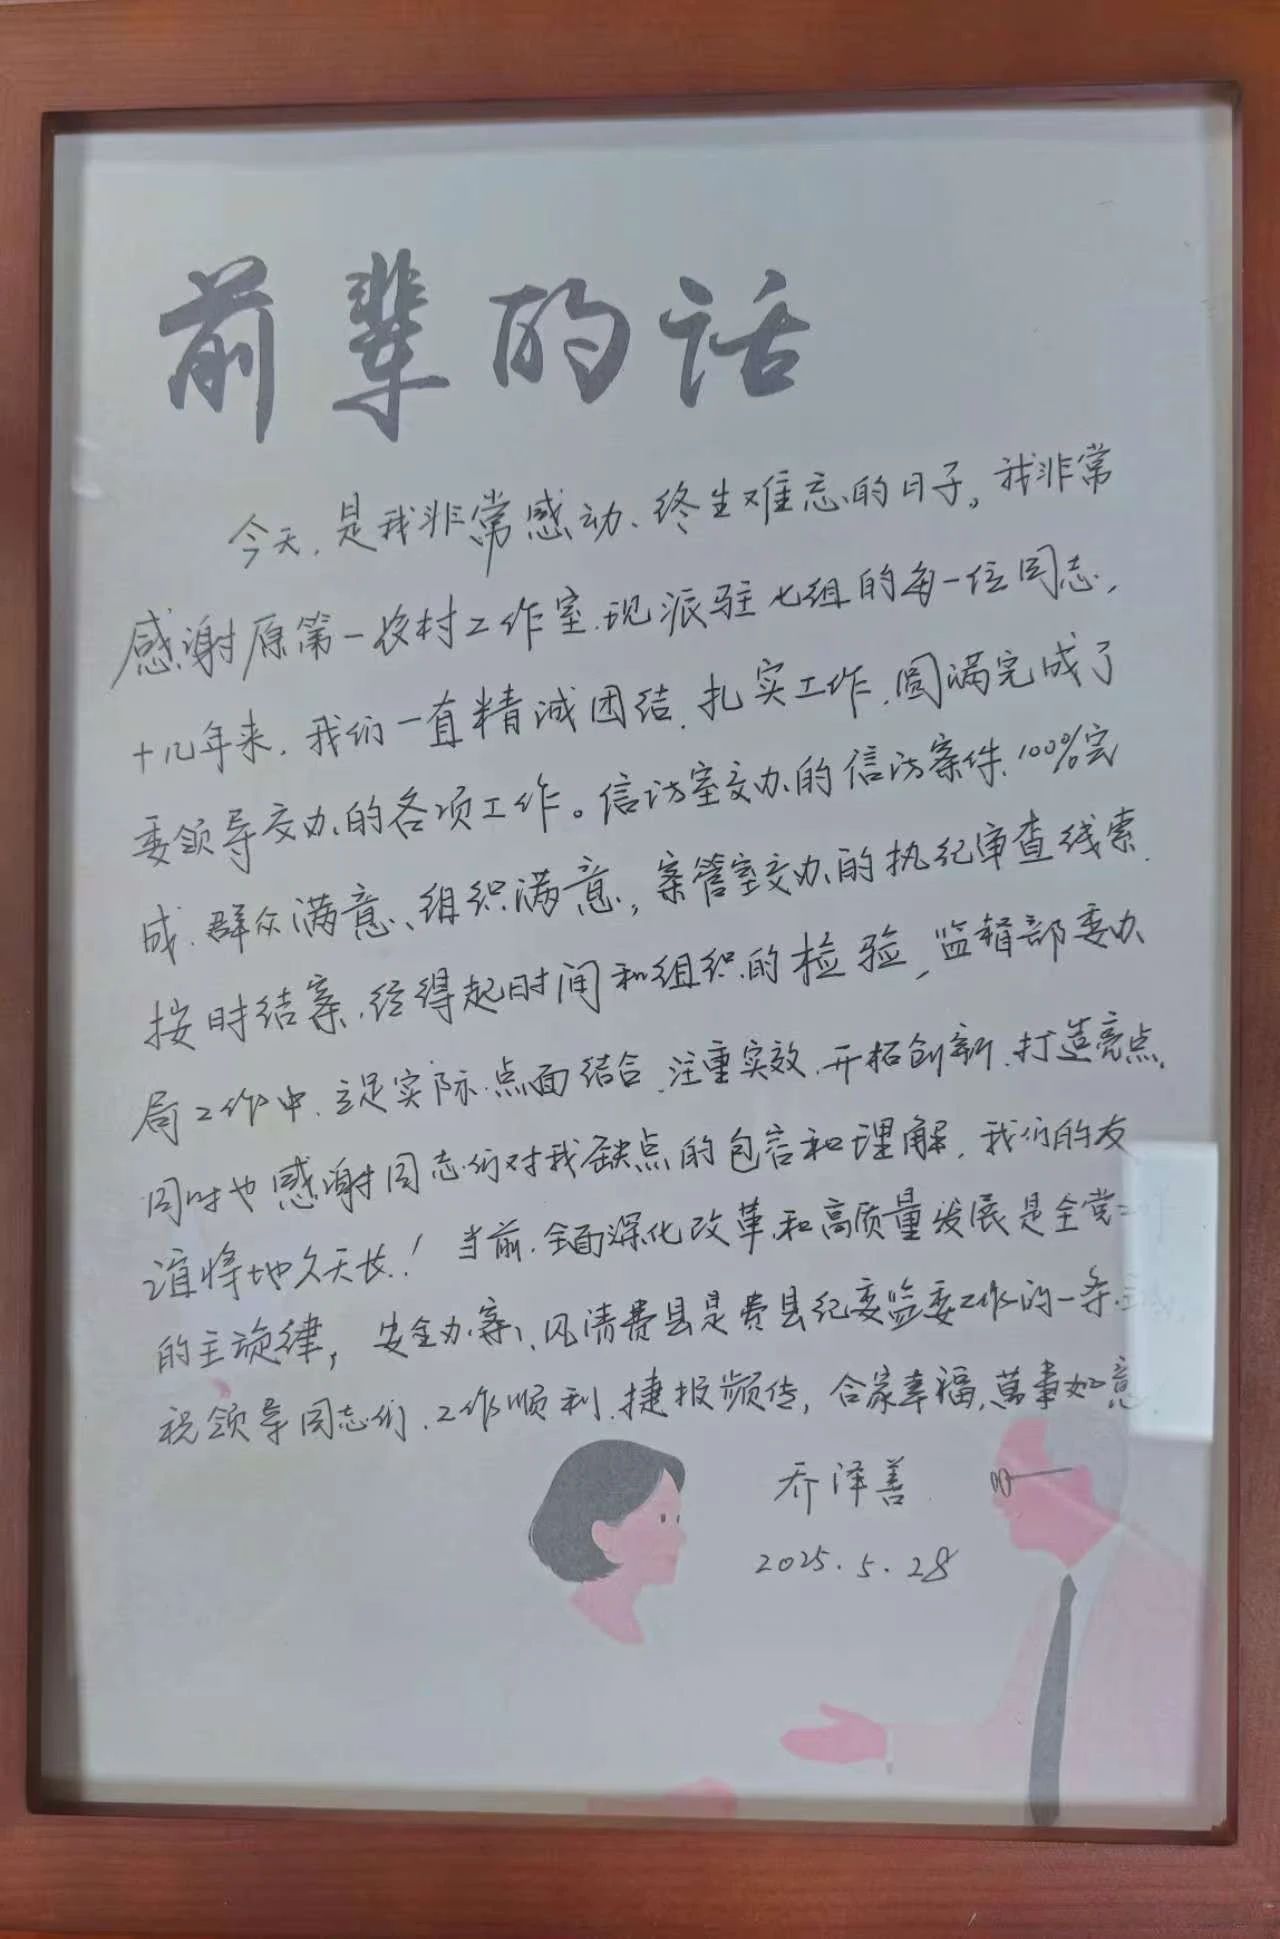 前辈的话
今天，是我非常感动、终生难忘的日子。我非常
感谢原第一农村工作室、现派驻七组的每一位同志，
十几年来，我们一直精诚团结、扎实工作，圆满完成了
委领导交办的各项工作。信访室交办的信访案件，100%完
成，群众满意、组织满意，案管室交办的执纪审查线索，
按时结案，经得起时间和组织的检验，监督部委办
局工作中，立足实际，点面结合，注重实效，开拓创新，打造亮点。
同时也感谢同志们对我缺点的包容和理解，我们的友
谊将地久天长！当前，全面深化改革和高质量发展是全党工作
的主旋律，安全办案、风清费县是费县纪委监委工作的一条主线
祝领导同志们，工作顺利，捷报频传，合家幸福，萬事如意
乔泽善
2025.5.28